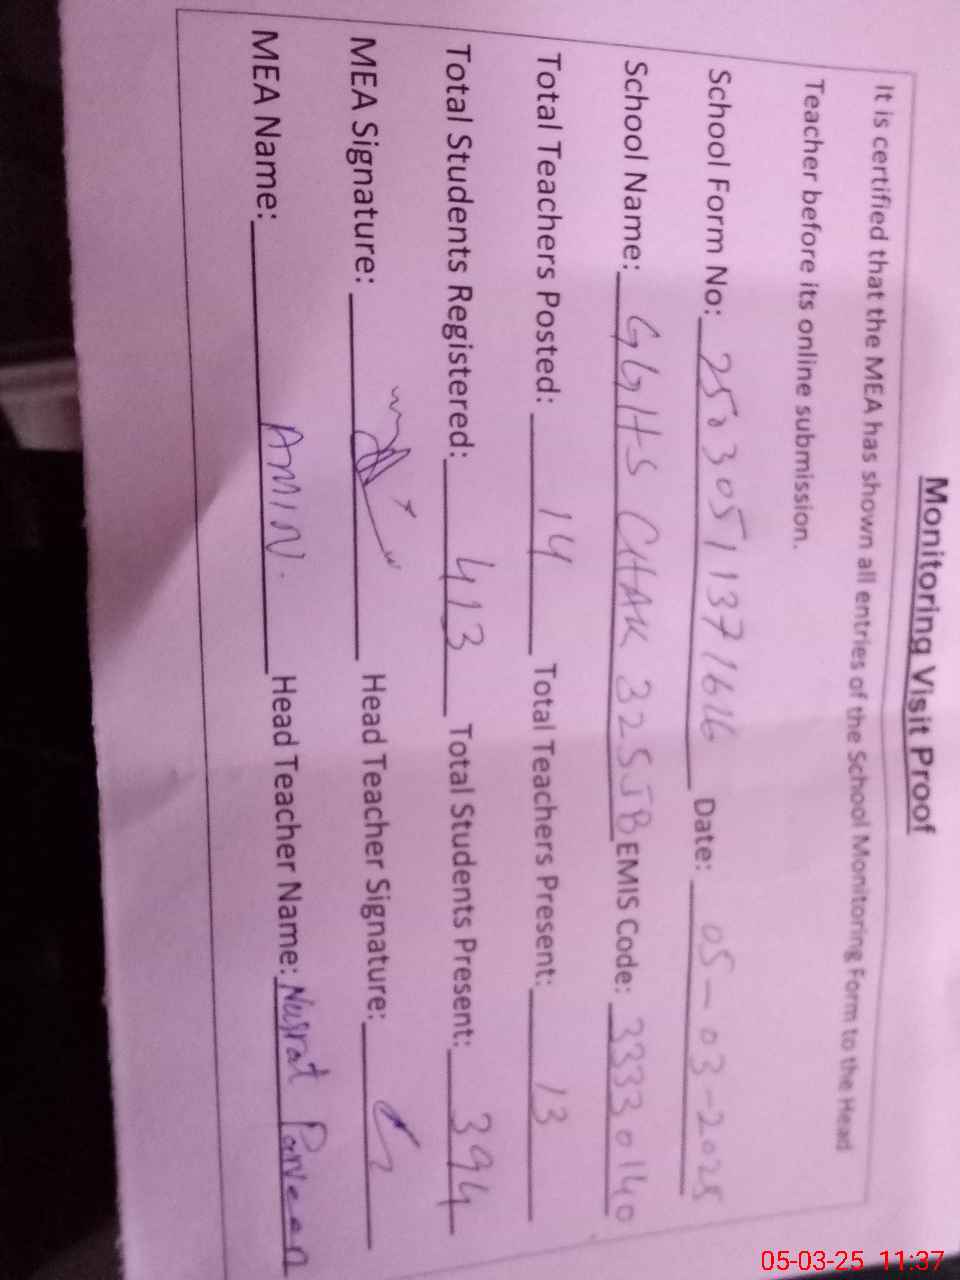 Monitoring Visit Proof
It is certified that the MEA has shown all entries of the School Monitoring Form to the Head
Teacher before its online submission.
School Form No: 25030511371616 Date: 05-03-2025
School Name: GGHS CHAK 325JB EMIS Code: 33330140
Total Teachers Posted: 14 Total Teachers Present: 13
Total Students Registered: 413 Total Students Present: 394
MEA Signature: Head Teacher Signature:
MEA Name: AMIN. Head Teacher Name: Nusrat Parveen
05-03-25 11:37